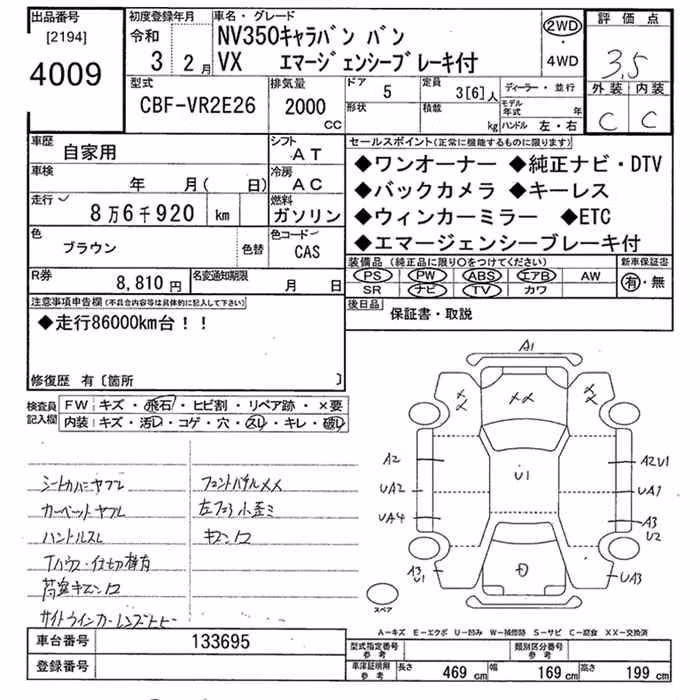 出品番号 初度登録年月 車名・グレード 評価点
[2194] 令和 NV350キャラバン バン 2WD
4009 3 2月 VX エマージェンシーブレーキ付 ・4WD 3,5
型式 排気量 ドア 定員 ディーラー・並行 外装 内装
CBF-VR2E26 2000 CC 5 3[6]人 モデル年式 年 C C
形状 積載 kg ハンドル 左・右
車歴 自家用 シフト AT セールスポイント(正常に機能するものに限ります)
◆ワンオーナー ◆純正ナビ・DTV
車検 年 月( 日) 冷房 AC ◆バックカメラ ◆キーレス
走行 8万6千920 km 燃料 ガソリン ◆ウィンカーミラー ◆ETC
色 ブラウン 色替 色コード CAS ◆エマージェンシーブレーキ付
装備品(純正品に限り〇をつけてください) 新車保証書
R券 8,810円 名変通知期限 月 日 PS PW ABS エアB AW 有・無
SR ナビ TV カワ
注意事項申告欄(不具合内容等は具体的に記入して下さい) 後日品 保証書・取説
◆走行86000km台!!
修復歴 有〔箇所 〕
検査員記入欄 FW キズ・飛石・ヒビ割・リペア跡・×要
内装 キズ・汚レ・コゲ・穴・スレ・キレ・破レ
シートカバーヤブレ フロントパネルXX
カーペットヤブレ 左フロア小歪ミ
ハンドルスレ キズ凹
荷室キズ凹
A1
XX XX XX
A2 U1 A2U1
UA2 UA1
UA4 A3
U2
A3 U1 UA3
スペア
A-キズ E-エクボ U-凹み W-補修跡 S-サビ C-腐食 XX-交換済
車台番号 133695 型式指定番号 参考 類別区分番号 参考
登録番号 車庫証明用 参考 長さ 469cm 幅 169cm 高さ 199cm